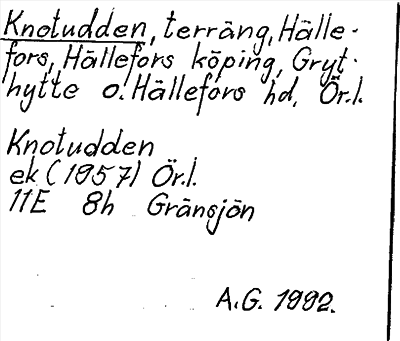 Knotudden, terräng, Hälle-
fors, Hällefors köping, Gryt-
hytte o. Hällefors hd, Ör.l.
Knotudden
ek (1957) Ör.l.
11E 8h Gränsjön
A.G. 1992.